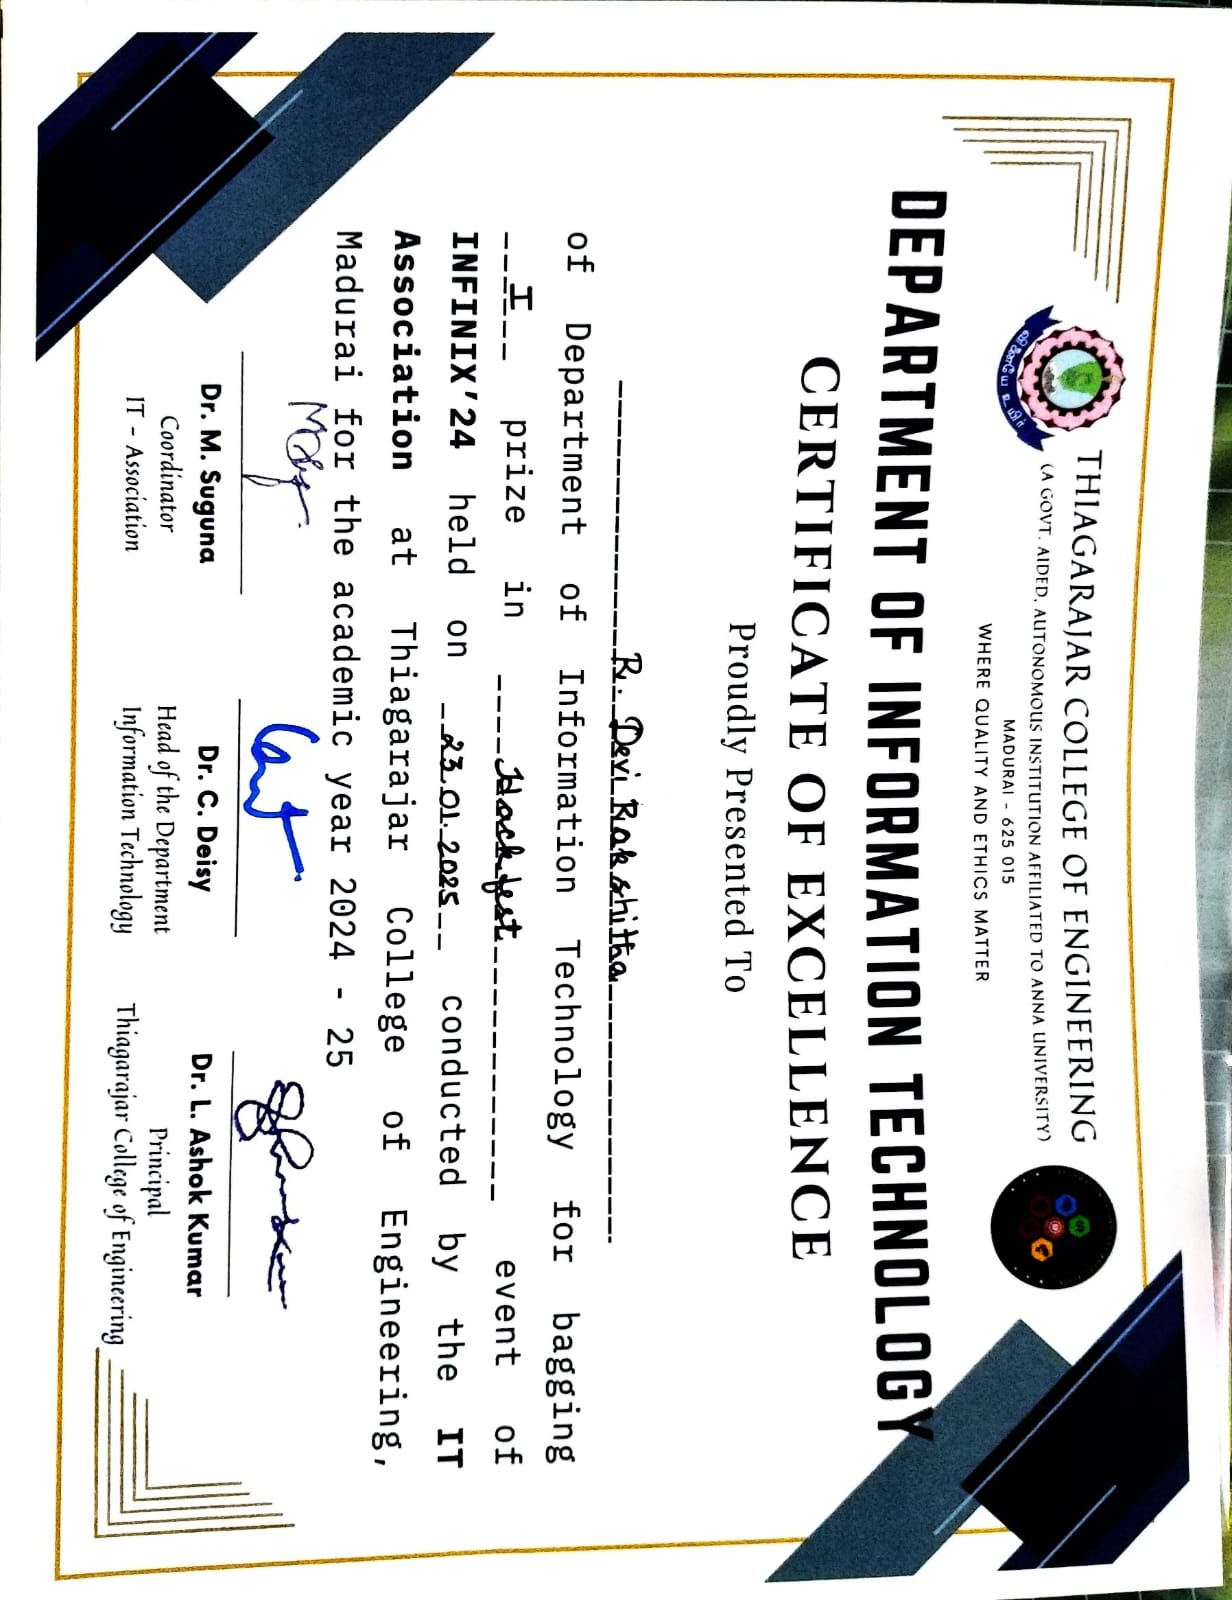 THIAGARAJAR COLLEGE OF ENGINEERING
(A GOVT. AIDED, AUTONOMOUS INSTITUTION AFFILIATED TO ANNA UNIVERSITY)
MADURAI - 625 015
WHERE QUALITY AND ETHICS MATTER
வினையே உயிர்
DEPARTMENT OF INFORMATION TECHNOLOGY
CERTIFICATE OF EXCELLENCE
Proudly Presented To
R. Devi Rakshitha
of Department of Information Technology for bagging
I prize in Hackfest event of
INFINIX'24 held on 23.01.2025 conducted by the IT
Association at Thiagarajar College of Engineering,
Madurai for the academic year 2024 - 25
Dr. M. Suguna
Coordinator
IT - Association
Dr. C. Deisy
Head of the Department
Information Technology
Dr. L. Ashok Kumar
Principal
Thiagarajar College of Engineering